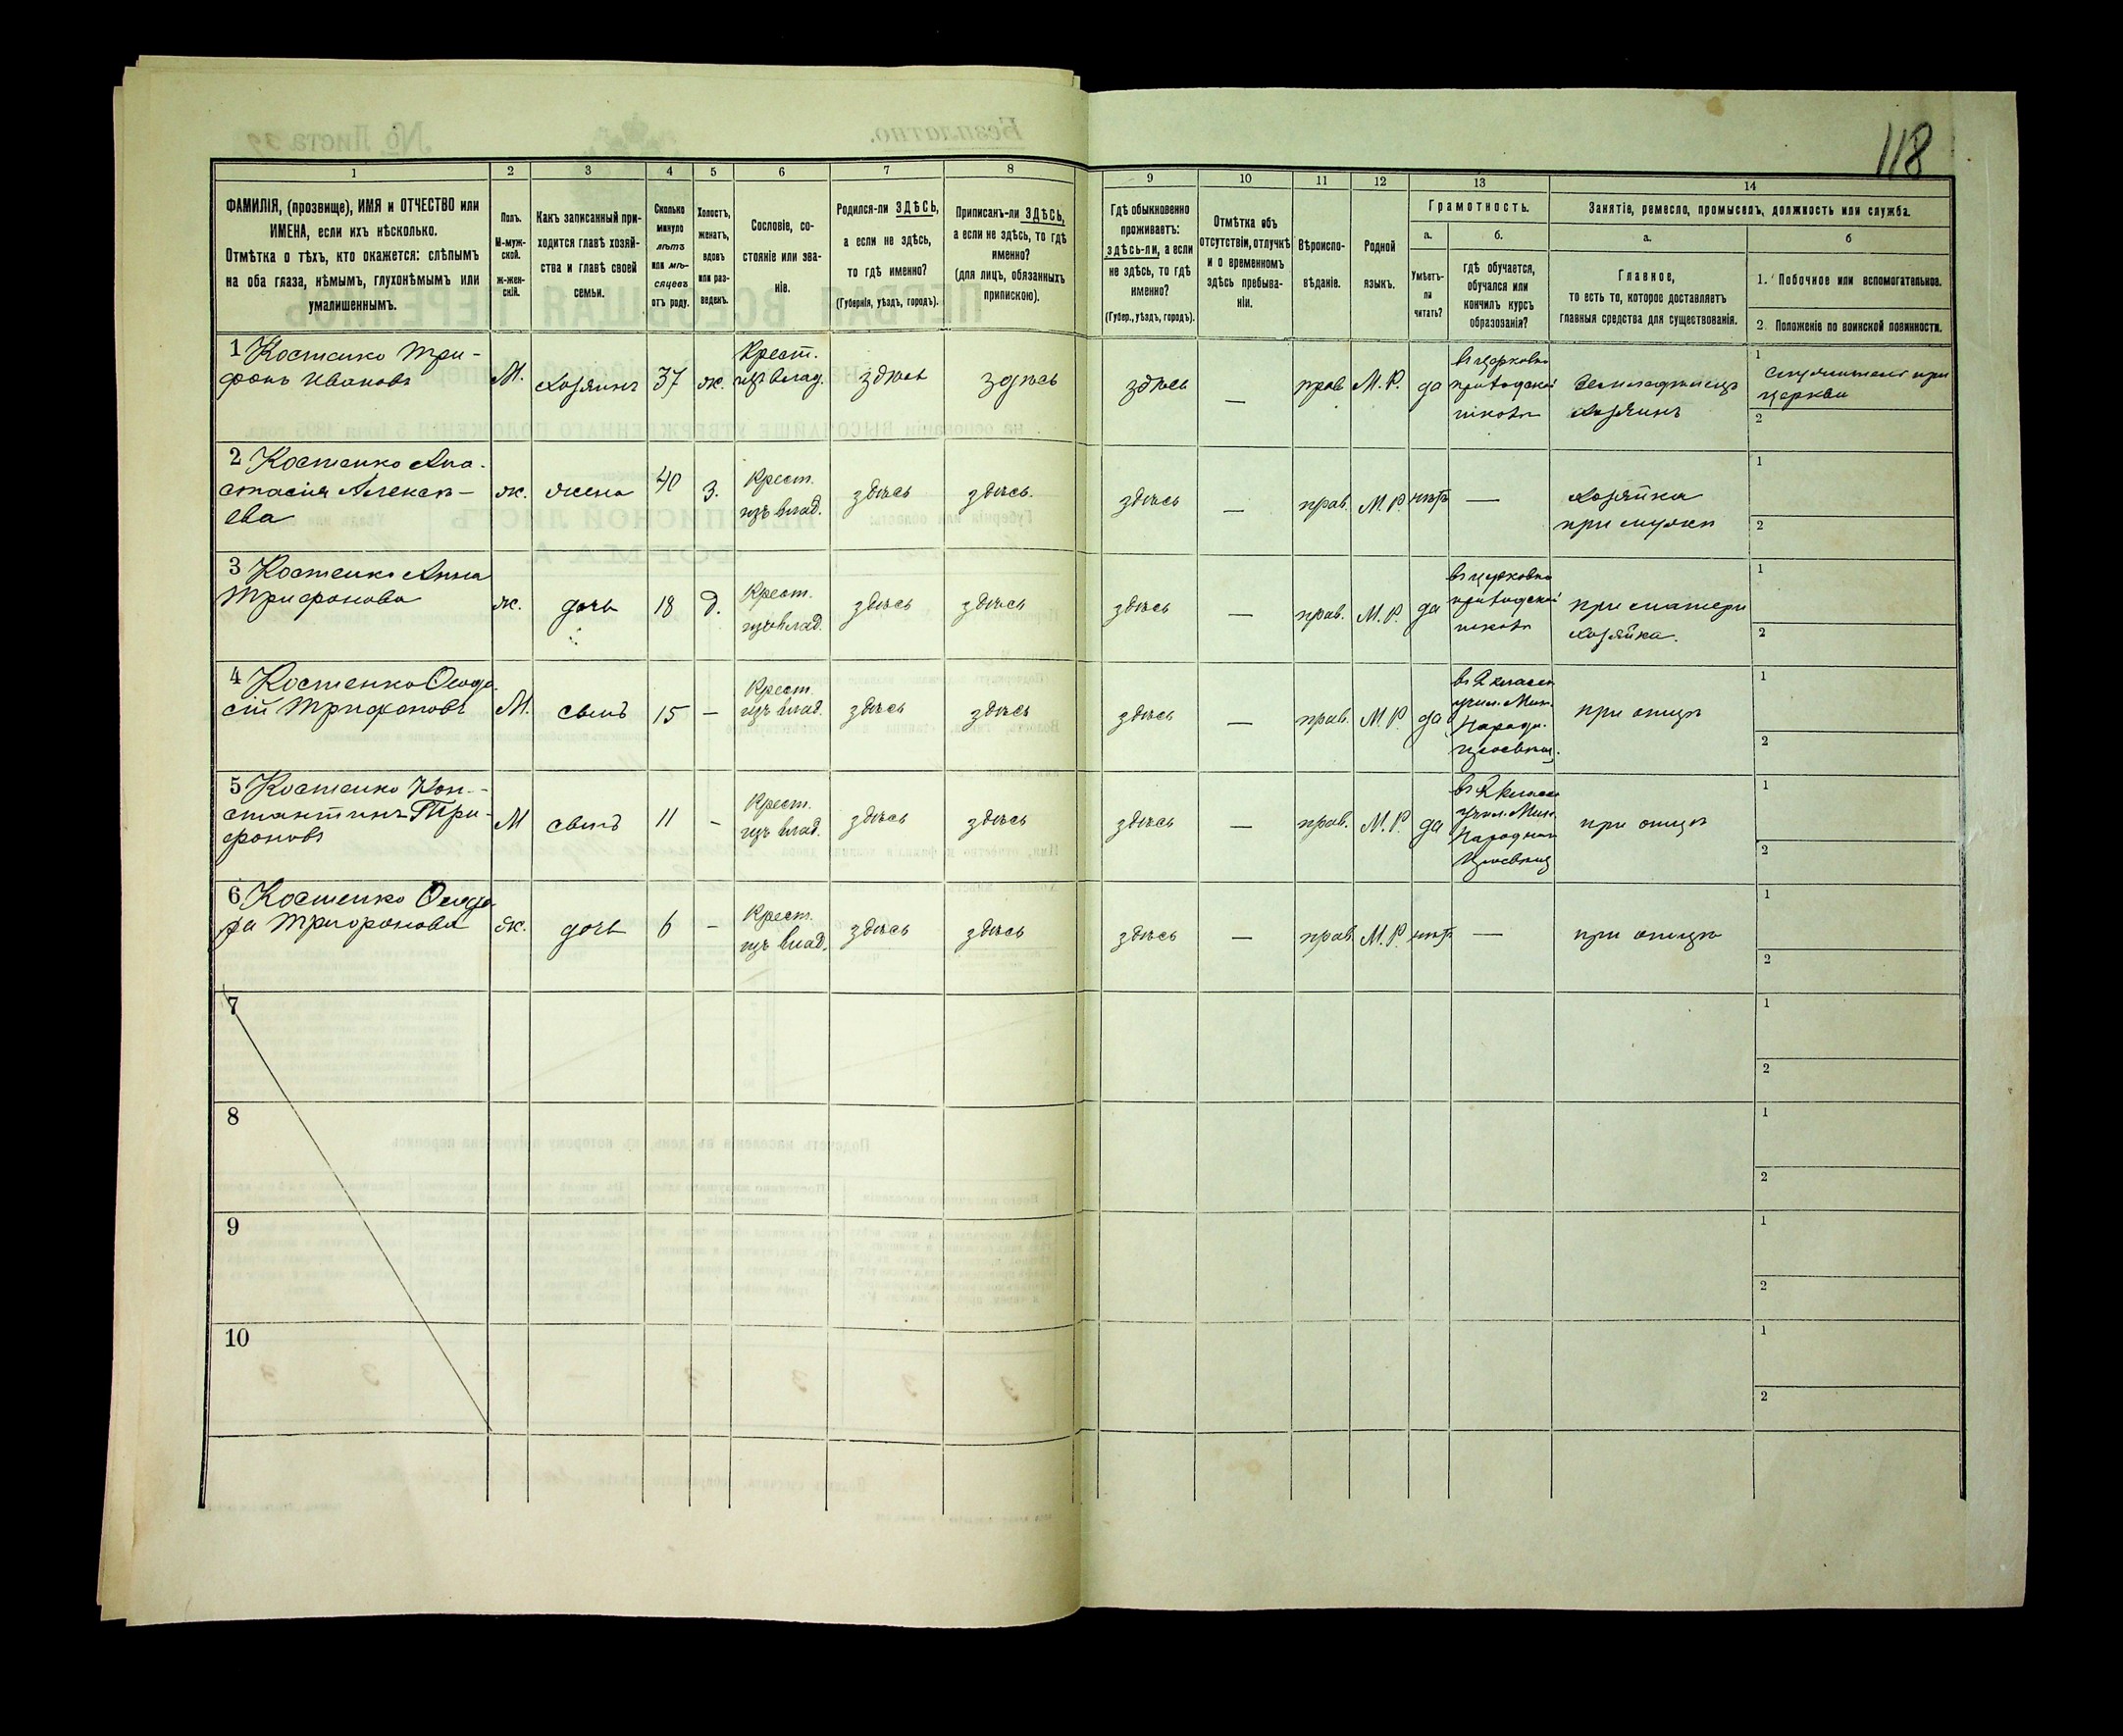 118
1 2 3 4 5 6 7 8 9 10 11 12 13 14
ФАМИЛІЯ, (прозвище), ИМЯ и ОТЧЕСТВО или
ИМЕНА, если ихъ нѣсколько.
Отмѣтка о тѣхъ, кто окажется: слѣпымъ
на оба глаза, нѣмымъ, глухонѣмымъ или
умалишеннымъ.
Полъ.
М-муж-
ской.
ж-жен-
скій.
Какъ записанный при-
ходится главѣ хозяй-
ства и главѣ своей
семьи.
Сколько
минуло
лѣтъ
или мѣ-
сяцевъ
отъ роду.
Холостъ,
женатъ,
вдовъ
или раз-
веденъ.
Сословіе, со-
стояніе или зва-
ніе.
Родился-ли ЗДѢСЬ,
а если не здѣсь,
то гдѣ именно?
(Губернія, уѣздъ, городъ).
Приписанъ-ли ЗДѢСЬ,
а если не здѣсь, то гдѣ
именно?
(для лицъ, обязанныхъ
припискою).
Гдѣ обыкновенно
проживаетъ:
здѣсь-ли, а если
не здѣсь, то гдѣ
именно?
(Губер., уѣздъ, городъ).
Отмѣтка объ
отсутствіи, отлучкѣ
и о временномъ
здѣсь пребыва-
ніи.
Вѣроиспо-
вѣданіе.
Родной
языкъ.
Грамотность.
а.
Умѣетъ-
ли
читать?
б.
гдѣ обучается,
обучался или
кончилъ курсъ
образованія?
Занятіе, ремесло, промыселъ, должность или служба.
а.
Главное,
то есть то, которое доставляетъ
главныя средства для существованія.
б
1. Побочное или вспомогательное.
2. Положеніе по воинской повинности.
1 Костенко Три-
фонъ Ивановъ
М.
Хозяинъ
37
ж.
Крест.
изъ влад.
здѣсь
здѣсь
здѣсь
—
прав
М. Р.
да
въ церковно
приходской
школѣ
Земледѣлецъ
Хозяинъ
1
при
церкви
2
2 Костенко Ана-
стасія Алексѣ-
ева
ж.
жена
40
з.
Крест.
изъ влад.
здѣсь
здѣсь.
здѣсь
—
прав.
М. Р.
нѣтъ
—
Хозяйка
при мужѣ
1
2
3 Костенко Анна
Трифонова
ж.
дочь
18
д.
Крест.
изъ влад.
здѣсь
здѣсь
здѣсь
—
прав.
М. Р.
да
въ церковно
приходской
школѣ
при матери
хозяйка.
1
2
4 Костенко Ѳеодо-
сій Трифоновъ
М.
сынъ
15
—
Крест.
изъ влад.
здѣсь
здѣсь
здѣсь
—
прав.
М. Р.
да
въ 2 класн
учил. Мин.
Народн.
Просвѣщ.
при отцѣ
1
2
5 Костенко Кон-
стантинъ Три-
фоновъ
М
сынъ
11
-
Крест.
изъ влад.
здѣсь
здѣсь
здѣсь
—
прав.
М. Р.
да
въ 2 класн
учил. Мин.
Народнаго
Просвѣщ
при отцѣ
1
2
6 Костенко Ѳеодо-
ра Трифонова
ж.
дочь
6
-
Крест.
изъ влад.
здѣсь
здѣсь
здѣсь
—
прав
М. Р.
нѣтъ
—
при отцѣ
1
2
7
1
2
8
1
2
9
1
2
10
1
2